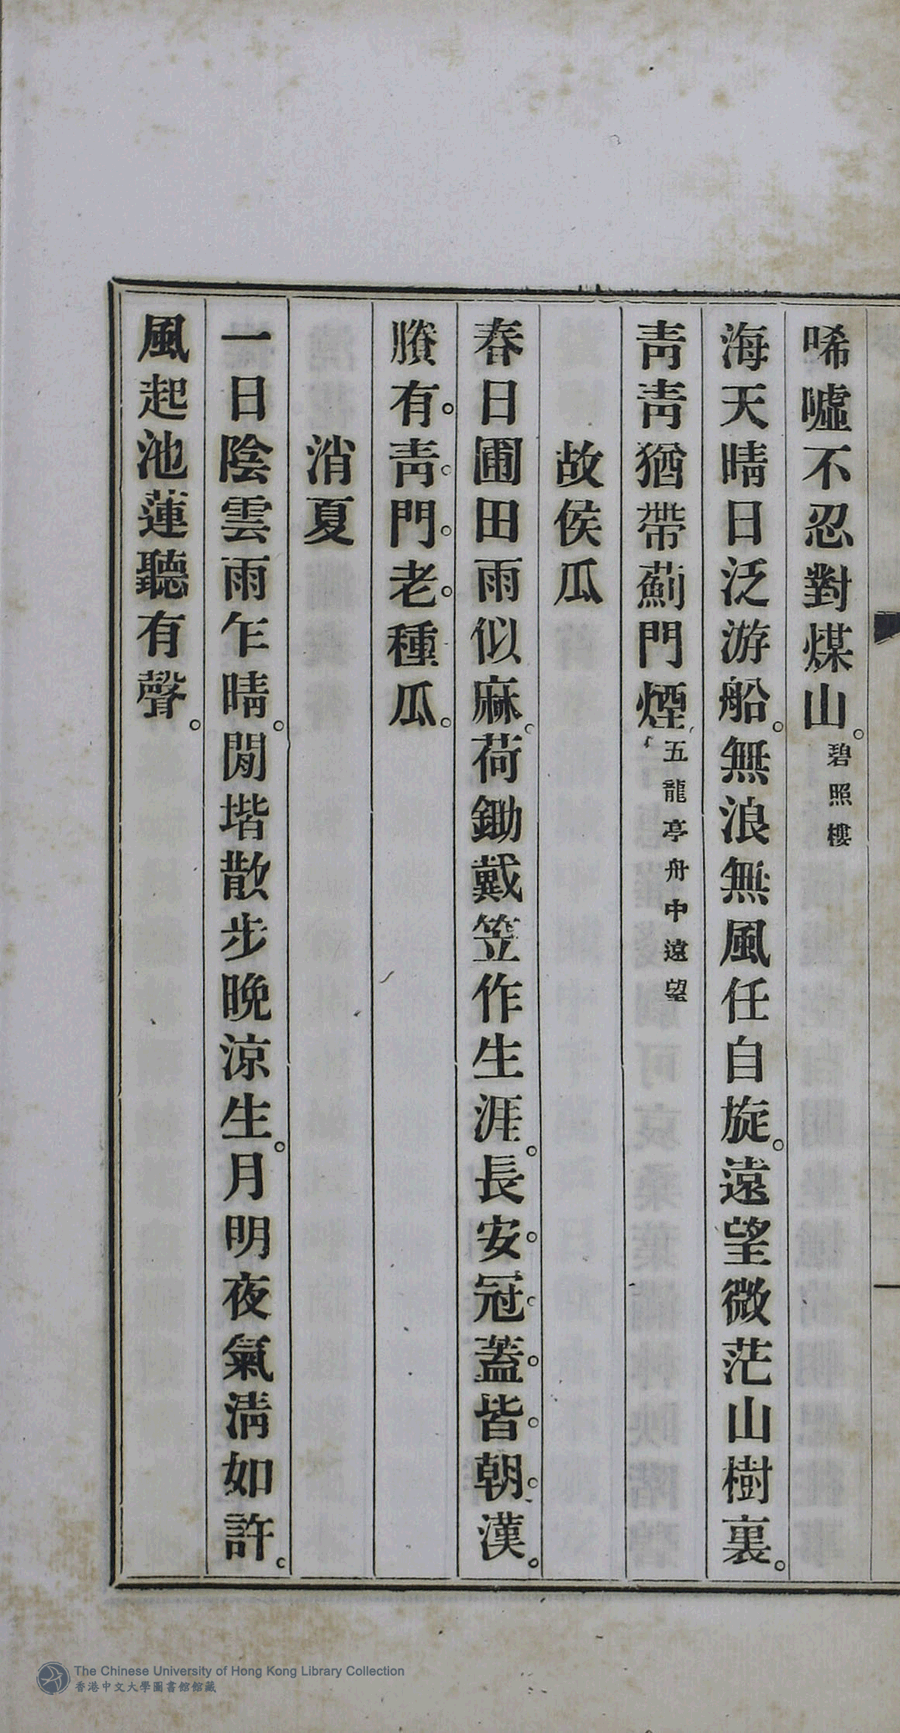 唏噓不忍對煤山。碧照樓
海天晴日泛游船。無浪無風任自旋。遠望微茫山樹裏。
靑靑猶帶薊門煙。五龍亭舟中遠望
故侯瓜
春日圃田雨似麻。荷鋤戴笠作生涯。長安。冠。蓋。皆。朝。漢。
賸有。靑。門。老。種瓜。
消夏
一日陰雲雨乍晴。閒堦散步晚涼生。月明夜氣淸如許。
風起池蓮聽有聲。
The Chinese University of Hong Kong Library Collection
香港中文大學圖書館館藏